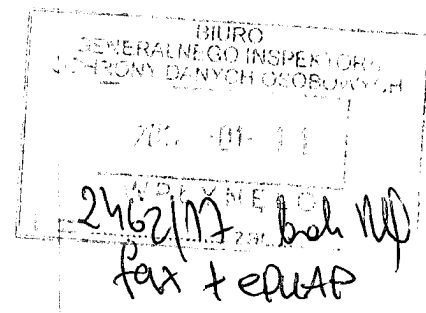 BIURO
GENERALNEGO INSPEKTORA
OCHRONY DANYCH OSOBOWYCH
-01- 11
WPŁYNĘŁO
2462/17
fax + ePUAP